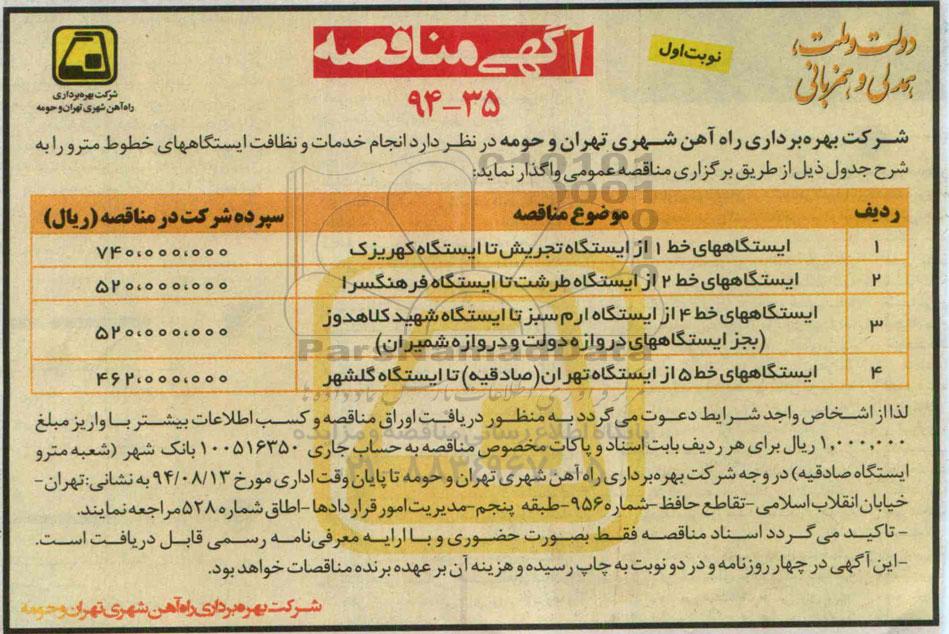 دولت و ملت،
همدلی و همزبانی
نوبت اول
آگهی مناقصه
۹۴-۳۵
شرکت بهره‌برداری
راه‌آهن شهری تهران و حومه
شرکت بهره‌برداری راه آهن شهری تهران و حومه در نظر دارد انجام خدمات و نظافت ایستگاههای خطوط مترو را به
شرح جدول ذیل از طریق برگزاری مناقصه عمومی واگذار نماید:
ردیف موضوع مناقصه سپرده شرکت در مناقصه (ریال)
۱ ایستگاههای خط ۱ از ایستگاه تجریش تا ایستگاه کهریزک ۷۴۰،۰۰۰،۰۰۰
۲ ایستگاههای خط ۲ از ایستگاه طرشت تا ایستگاه فرهنگسرا ۵۲۰،۰۰۰،۰۰۰
۳ ایستگاههای خط ۴ از ایستگاه ارم سبز تا ایستگاه شهید کلاهدوز
(بجز ایستگاههای دروازه دولت و دروازه شمیران) ۵۲۰،۰۰۰،۰۰۰
۴ ایستگاههای خط ۵ از ایستگاه تهران (صادقیه) تا ایستگاه گلشهر ۴۶۲،۰۰۰،۰۰۰
لذا از اشخاص واجد شرایط دعوت می گردد به منظور دریافت اوراق مناقصه و کسب اطلاعات بیشتر با واریز مبلغ
۱،۰۰۰،۰۰۰ ریال برای هر ردیف بابت اسناد و پاکات مخصوص مناقصه به حساب جاری ۱۰۰۵۱۶۳۵۰ بانک شهر (شعبه مترو
ایستگاه صادقیه) در وجه شرکت بهره‌برداری راه آهن شهری تهران و حومه تا پایان وقت اداری مورخ ۹۴/۰۸/۱۳ به نشانی: تهران-
خیابان انقلاب اسلامی- تقاطع حافظ- شماره ۹۵۶- طبقه پنجم- مدیریت امور قراردادها- اطاق شماره ۵۲۸ مراجعه نمایند.
- تاکید می گردد اسناد مناقصه فقط بصورت حضوری و با ارایه معرفی‌نامه رسمی قابل دریافت است.
- این آگهی در چهار روزنامه و در دو نوبت به چاپ رسیده و هزینه آن بر عهده برنده مناقصات خواهد بود.
شرکت بهره‌برداری راه‌آهن شهری تهران و حومه
ParsNamadData